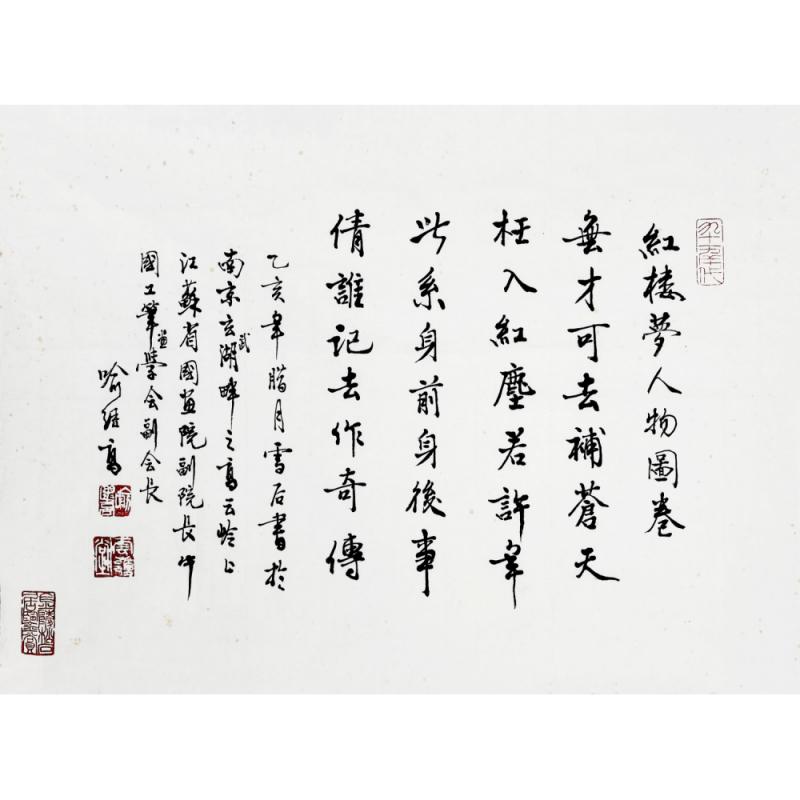 紅楼夢人物圖卷
無才可去補蒼天
枉入紅塵若許年
此系身前身後事
倩誰記去作奇傳
乙亥年腊月雪后書於
南京玄武湖畔之高云岭上
江蘇省國画院副院長中
國工筆画學会副会長
喻继高